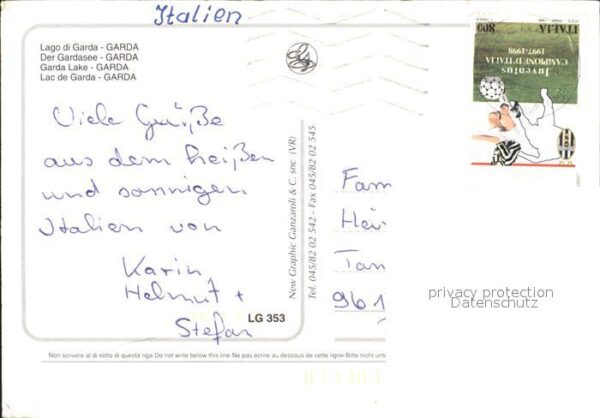 Italien
Lago di Garda - GARDA
Der Gardasee - GARDA
Garda Lake - GARDA
Lac de Garda - GARDA
Viele Grüße
aus dem heißen
und sonnigen
Italien von
Karin,
Helmut +
Stefan
LG 353
New Graphic Ganzaroli & C. snc (VR)
Tel. 045/82 02 542 - Fax 045/82 02 545
ITALIA
800
Juventus
CAMPIONE D'ITALIA
1997-1998
Fam
Hei
Tan
961
privacy protection
Datenschutz
Non scrivere al di sotto di questa riga Do not write below this line Ne pas écrire au dessous de cette ligne Bitte nicht unt